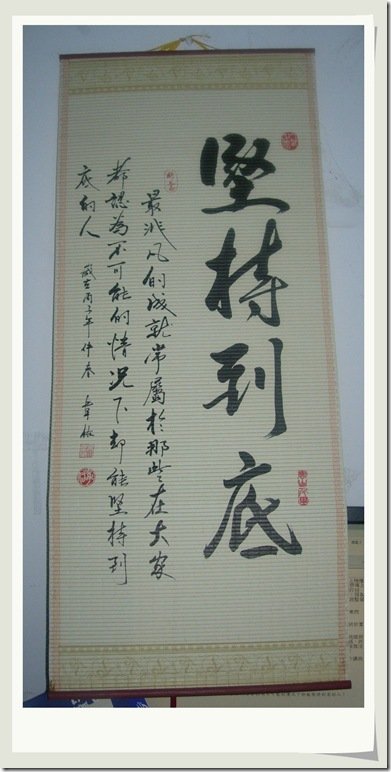 堅持到底
最非凡的成就常屬於那些在大家
都認為不可能的情況下却能堅持到
底的人
歲在丙子年仲春